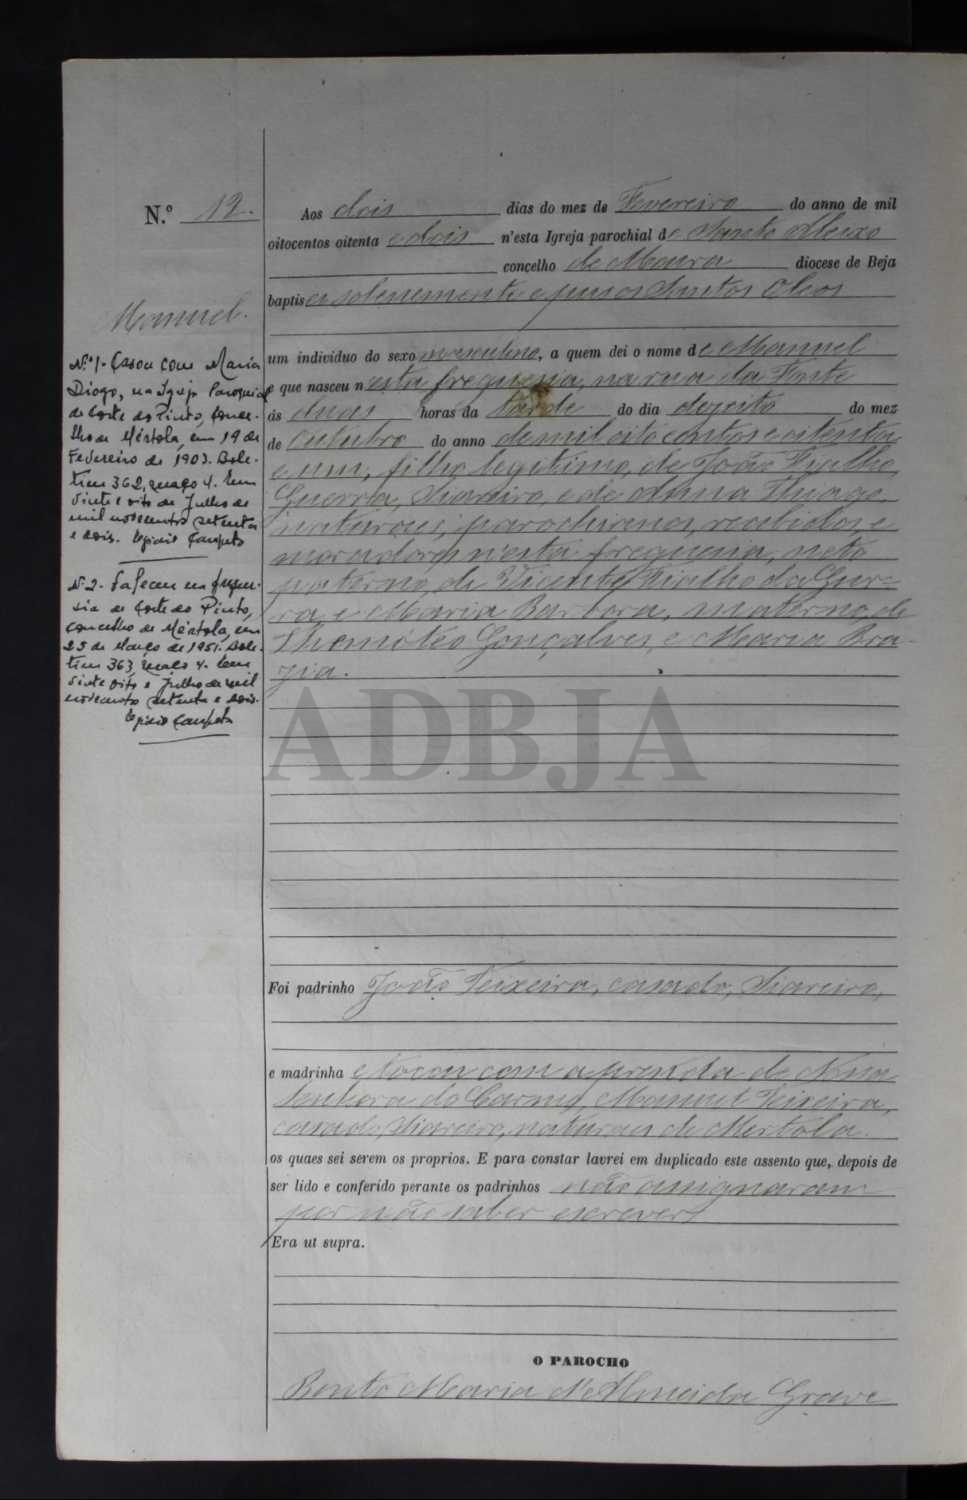 N.º 12.
Manuel.
Nº 1 - Casou com Maria
Diogo, na Igreja Paroquial
de Corte do Pinto, conce-
lho de Mértola, em 19 de
Fevereiro de 1903. Bole-
tim 362, maço 4. Em
vinte e oito de Julho de
mil novecentos setenta
e dois.
Nº 2. Faleceu na fregue-
sia de Corte do Pinto,
concelho de Mértola, em
25 de Março de 1951. Bole-
tim 363, maço 4. Em
vinte oito e Julho de mil
novecentos setenta e dois.
Aos dois dias do mez de Fevereiro do anno de mil
oitocentos oitenta e dois n'esta Igreja parochial de Santo Aleixo
concelho de Moura diocese de Beja
baptisei solenemente e puz os Santos Oleos
um individuo do sexo masculino, a quem dei o nome de Manuel
e que nasceu n'esta freguesia, na rua da Fonte
ás duas horas da tarde do dia dezoito do mez
de Outubro do anno de mil oito centos e oitenta
e um, filho legitimo de João Fialho
Guerra, Siareiro, e de Anna Thiago,
naturaes, parochianos, recebidos e
moradores n'esta freguesia, neto
paterno de Vicente Fialho da Guer-
ra, e Maria Barbora, materno, de
Thimóteo Gonçalves, e Maria Bra-
zia.
ADBJA
Foi padrinho João Teixeira, casado, Siareiro,
e madrinha e tocou com a prenda de Nossa
Senhora do Carmo, Manuel Teixeira,
casado, Siareiro, naturaes de Mertola.
os quaes sei serem os proprios. E para constar lavrei em duplicado este assento que, depois de
ser lido e conferido perante os padrinhos não assignaram
por não saber escrever
Era ut supra.
O PAROCHO
Bento Maria d'Almeida Grave